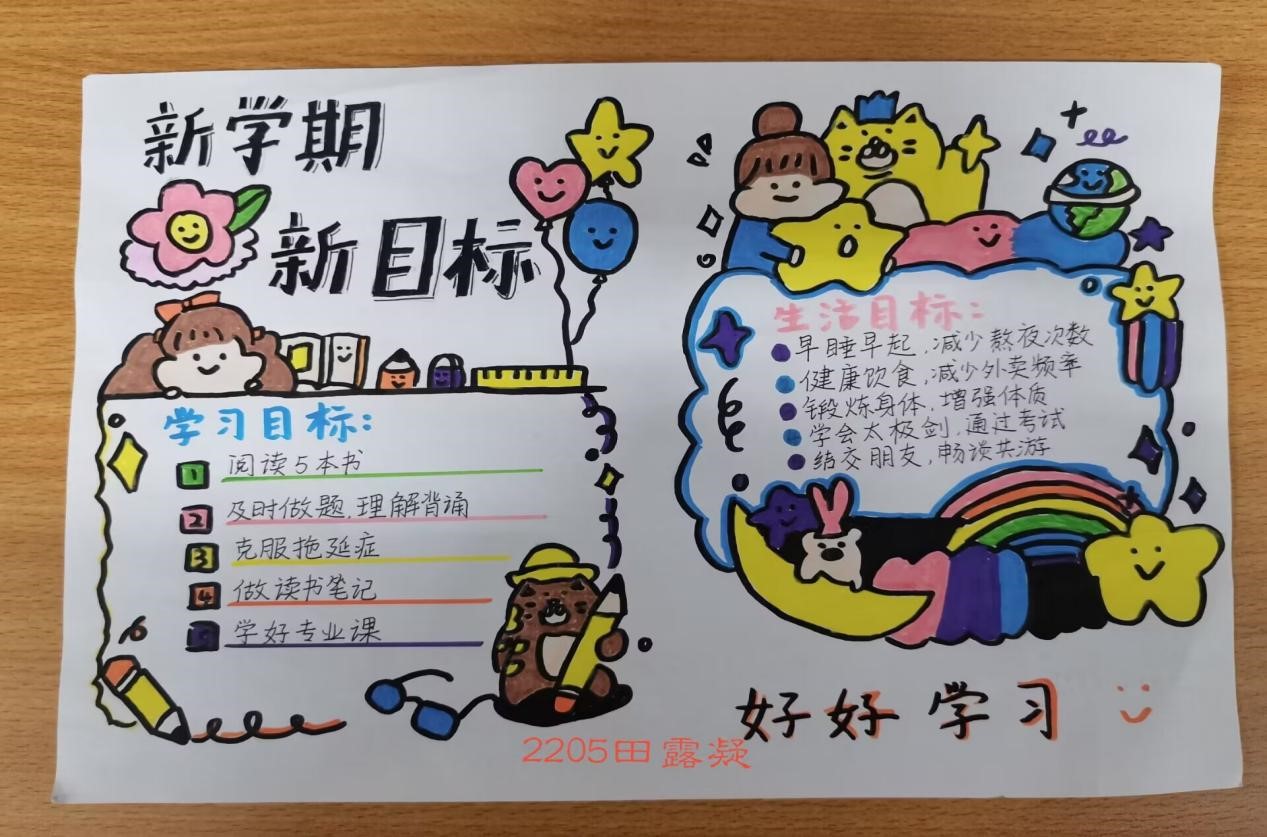 新学期
新目标
学习目标:
1 阅读5本书
2 及时做题 理解背诵
3 克服拖延症
4 做读书笔记
5 学好专业课
生活目标:
早睡早起,减少熬夜次数
健康饮食,减少外卖频率
锻炼身体,增强体质
学会太极剑,通过考试
结交朋友,畅谈共游
好好学习
2205田露凝